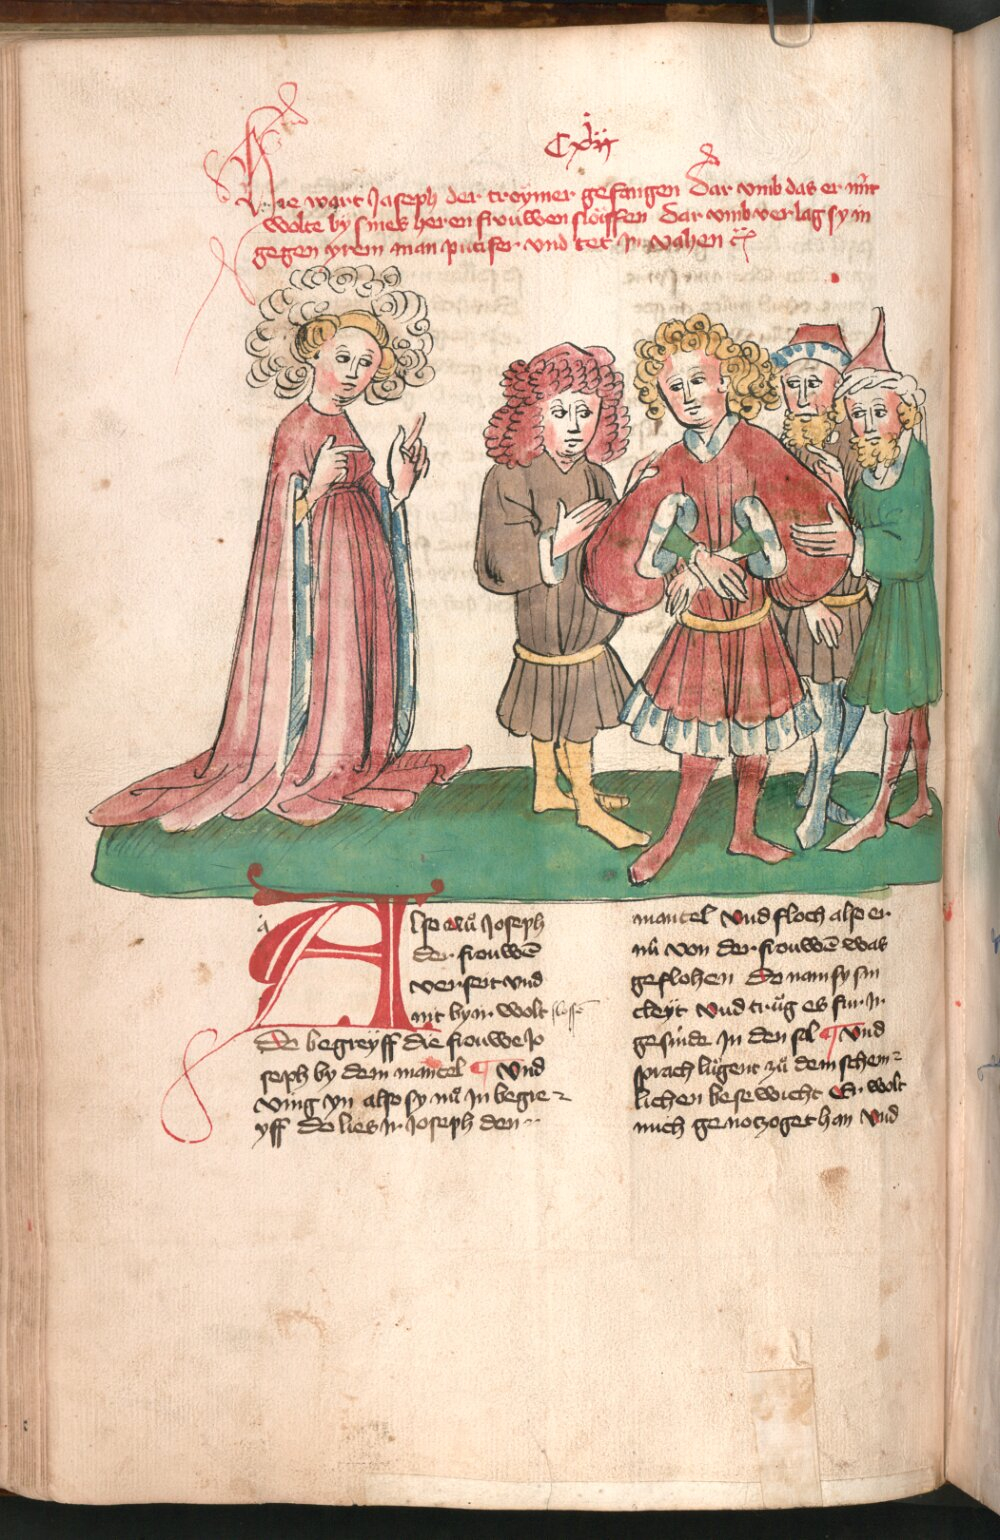 Cxlii
Hie wart Joseph der troymer gefangen Dar vmb das er nüt
wolte by sines heren frouwen sloffen Dar vmb verlag sy in
gegen yrem man putifer vnd tet in vahen
Also wů Joseph
der frouwē
verseit vnd
nit by ir wolt sloffē
Do begreyff die frouwe Jo
seph by dem mantel ¶ Vnd
ving yn also sy nů in begre
yff do lies ir Joseph den
mantel Vnd floch also er
nů von der frouwē was
geflohen Do nam sy sin
cleyt Vnd trůg es fur ir
gesinde in den sal ¶ Vnd
sprach lůgent zů dem schem
lichen besewicht Er wolt
mich genotzoget han Vnd